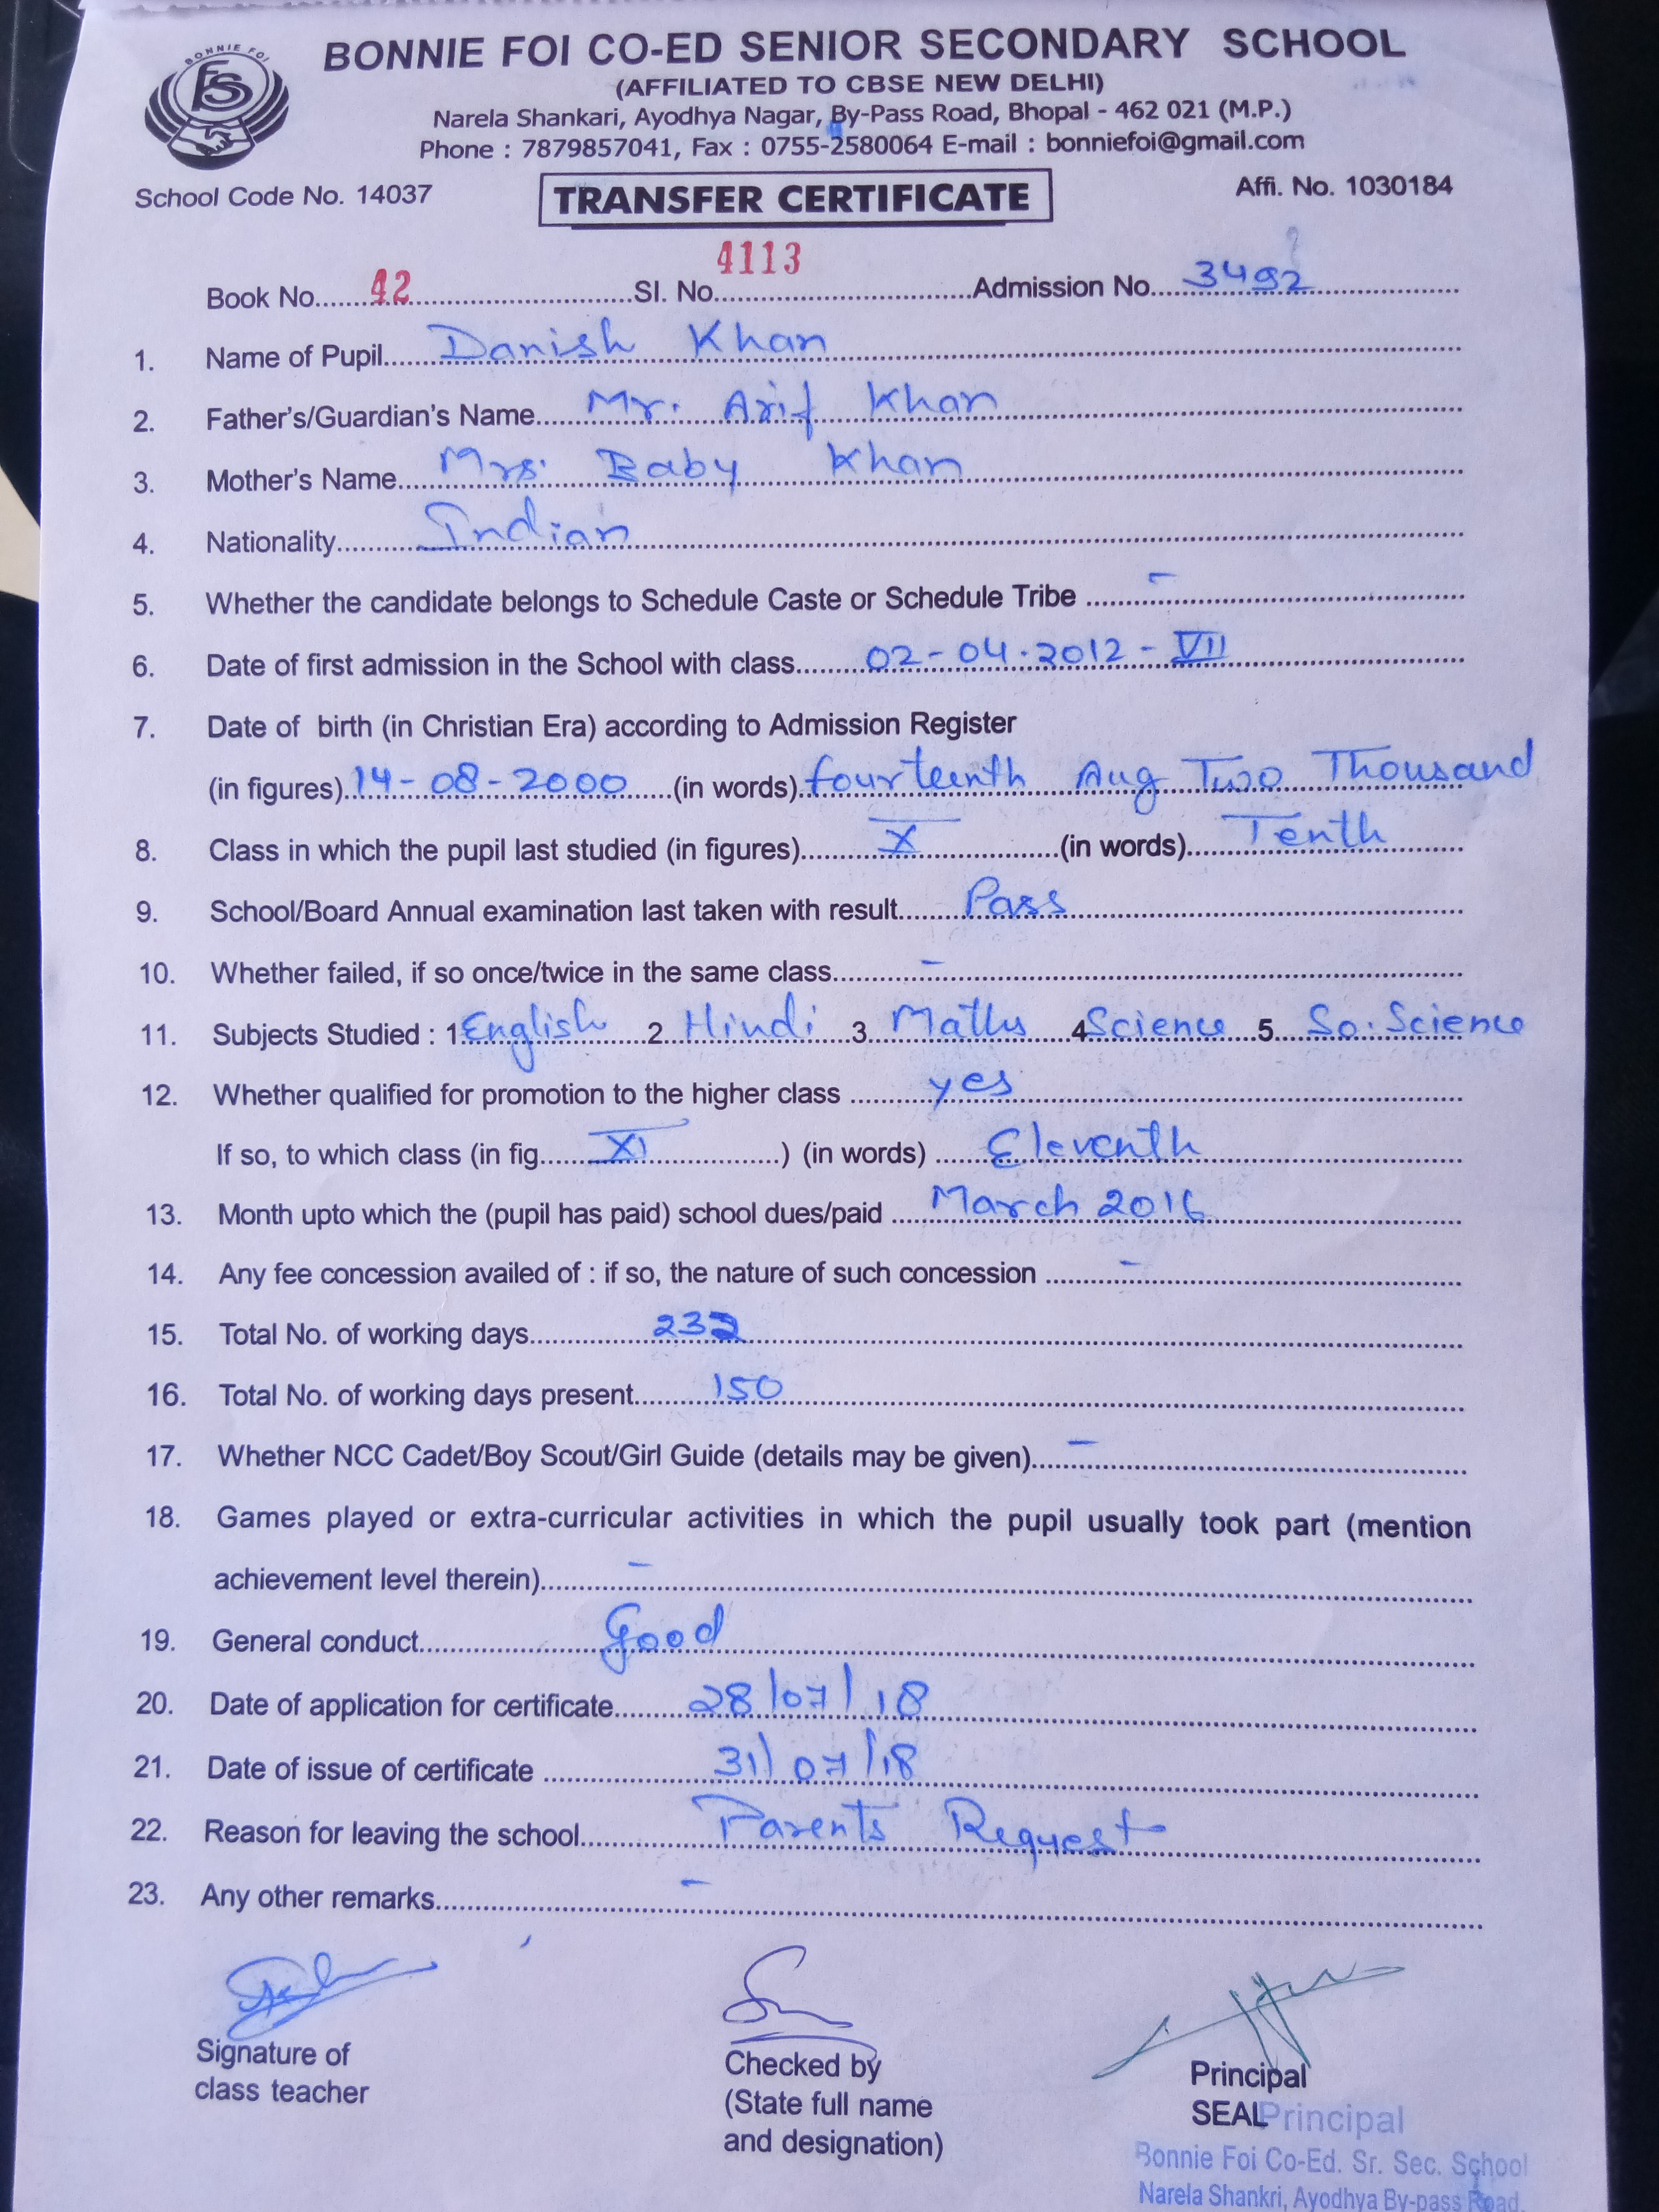 BONNIE FOI
BFS
BONNIE FOI CO-ED SENIOR SECONDARY SCHOOL
(AFFILIATED TO CBSE NEW DELHI)
Narela Shankari, Ayodhya Nagar, By-Pass Road, Bhopal - 462 021 (M.P.)
Phone : 7879857041, Fax : 0755-2580064 E-mail : bonniefoi@gmail.com
School Code No. 14037 TRANSFER CERTIFICATE Affi. No. 1030184
Book No. 42 Sl. No. 4113 Admission No. 3492
1. Name of Pupil Danish Khan
2. Father's/Guardian's Name Mr. Arif Khan
3. Mother's Name Mrs. Baby Khan
4. Nationality Indian
5. Whether the candidate belongs to Schedule Caste or Schedule Tribe -
6. Date of first admission in the School with class 02-04-2012 - VII
7. Date of birth (in Christian Era) according to Admission Register
(in figures) 14-08-2000 (in words) fourteenth Aug Two Thousand
8. Class in which the pupil last studied (in figures) X (in words) Tenth
9. School/Board Annual examination last taken with result Pass
10. Whether failed, if so once/twice in the same class -
11. Subjects Studied : 1. English 2. Hindi 3. Maths 4. Science 5. So. Science
12. Whether qualified for promotion to the higher class yes
If so, to which class (in fig. XI ) (in words) Eleventh
13. Month upto which the (pupil has paid) school dues/paid March 2016
14. Any fee concession availed of : if so, the nature of such concession -
15. Total No. of working days 232
16. Total No. of working days present 150
17. Whether NCC Cadet/Boy Scout/Girl Guide (details may be given) -
18. Games played or extra-curricular activities in which the pupil usually took part (mention
achievement level therein) -
19. General conduct Good
20. Date of application for certificate 28/07/18
21. Date of issue of certificate 31/07/18
22. Reason for leaving the school Parents Request
23. Any other remarks -
Signature of
class teacher
Checked by
(State full name
and designation)
Principal
SEAL
Principal
Bonnie Foi Co-Ed. Sr. Sec. School
Narela Shankri, Ayodhya By-pass Road,